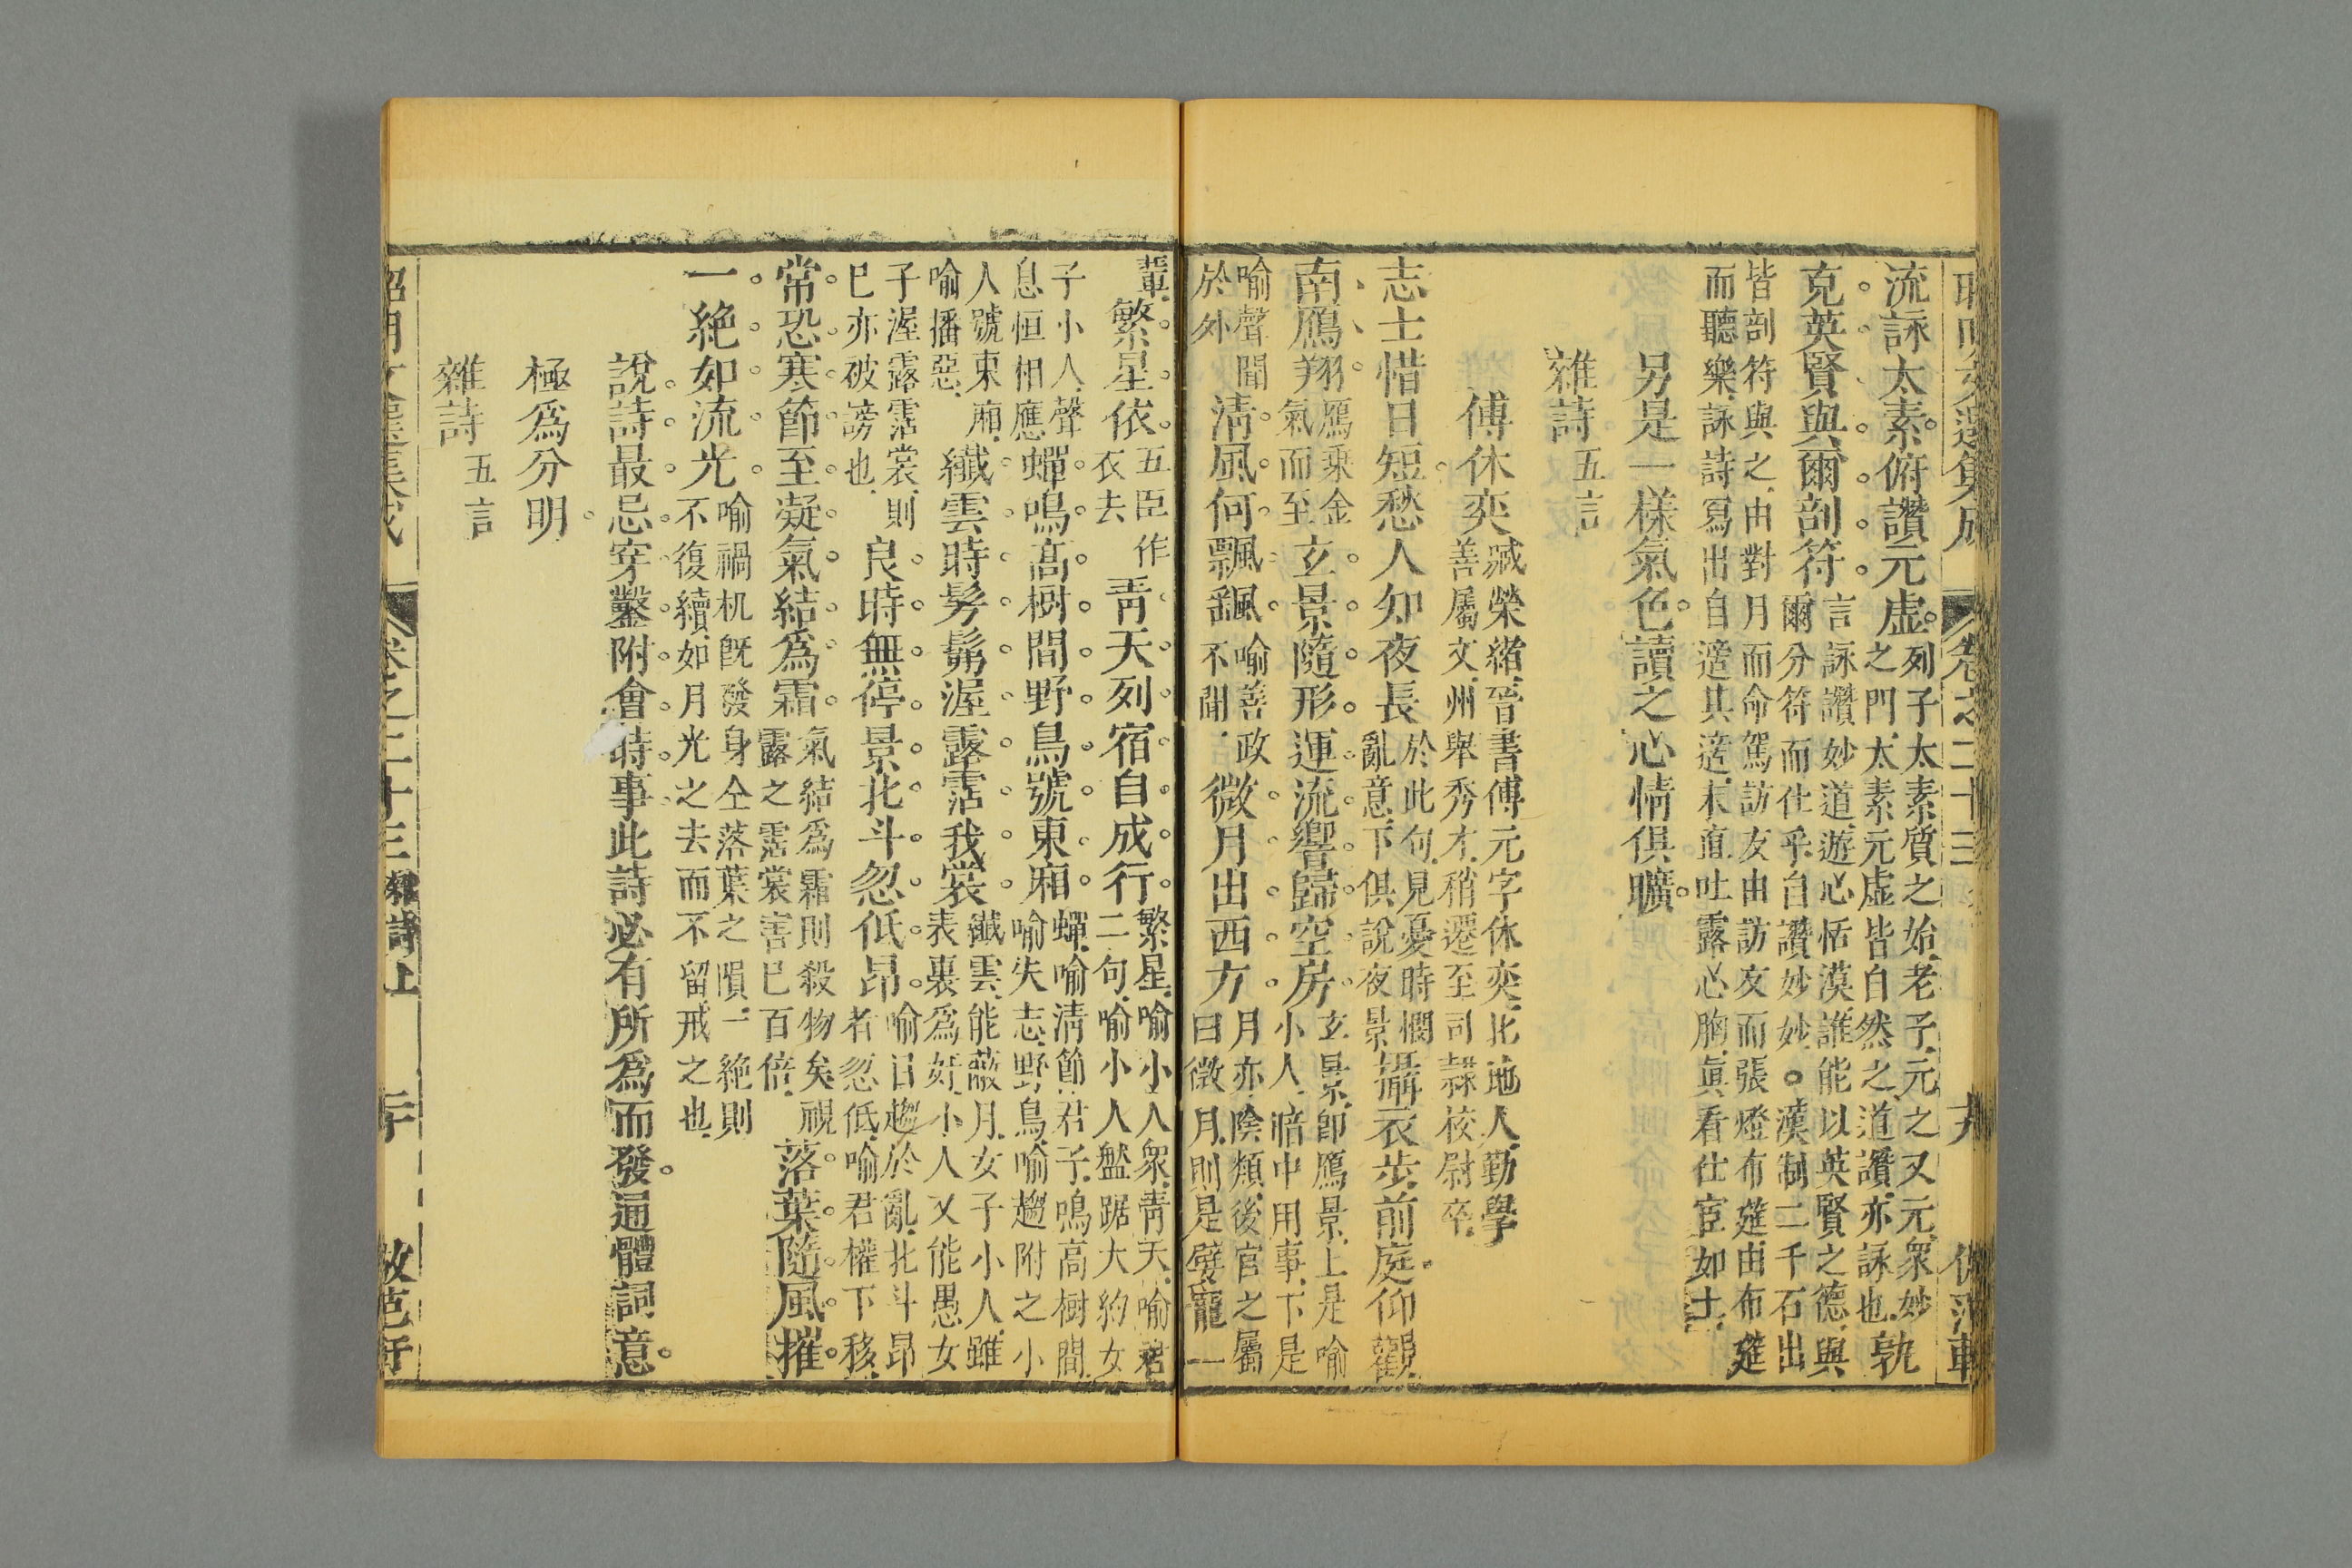 卷之二十三
流詠太素俯讚元虛列子太素質之始老子元之又元衆妙之門太素元虛皆自然之道讚亦詠也孰
克英賢與爾剖符言詠讚妙道遊心恬漠誰能以英賢之德與爾分符而仕乎自讚妙妙○漢制二千石出
皆剖符與之由對月而命駕訪友由訪友而張燈布筵由布筵而聽樂詠詩寫出自適其適末直吐露心胸眞看仕宦如土
另是一樣氣色讀之心情俱曠
雜詩五言
傅休奕臧榮緒晉書傅元字休奕北地人勤學善屬文州舉秀才稍遷至司隸校尉卒
志士惜日短愁人知夜長於此句見憂時憫亂意下俱說夜景攝衣步前庭仰觀
南鴈翔鴈乘金氣而至玄景隨形運流響歸空房玄景卽鴈景上是喻小人暗中用事下是
喻聲聞於外淸風何飄颻喻善政不聞微月出西方月亦陰類後宮之屬曰微月則是嬖寵一
輩繁星依五臣作衣去靑天列宿自成行繁星喻小人衆靑天喻君二句喻小人盤踞大約女
子小人聲息恒相應蟬鳴高樹間野鳥號東廂蟬喻淸節君子鳴高樹間喻失志野鳥喻趨附之小
人號東廂喻播惡纖雲時髣髴渥露霑我裳纖雲能蔽月女子小人雖表裏爲奸小人又能愚女
子渥露霑裳則已亦破謗也良時無停景北斗忽低昂喻日趨於亂北斗昂者忽低喻君權下移
常恐寒節至凝氣結爲霜氣結爲霜則殺物矣視露之霑裳害已百倍落葉隨風摧
一絶如流光喻禍机旣發身仝落葉之隕一絶則不復續如月光之去而不留戒之也
說詩最忌穿鑿附會時事此詩必有所爲而發通體詞意
極爲分明
雜詩五言
卷之二十三 雜詩上